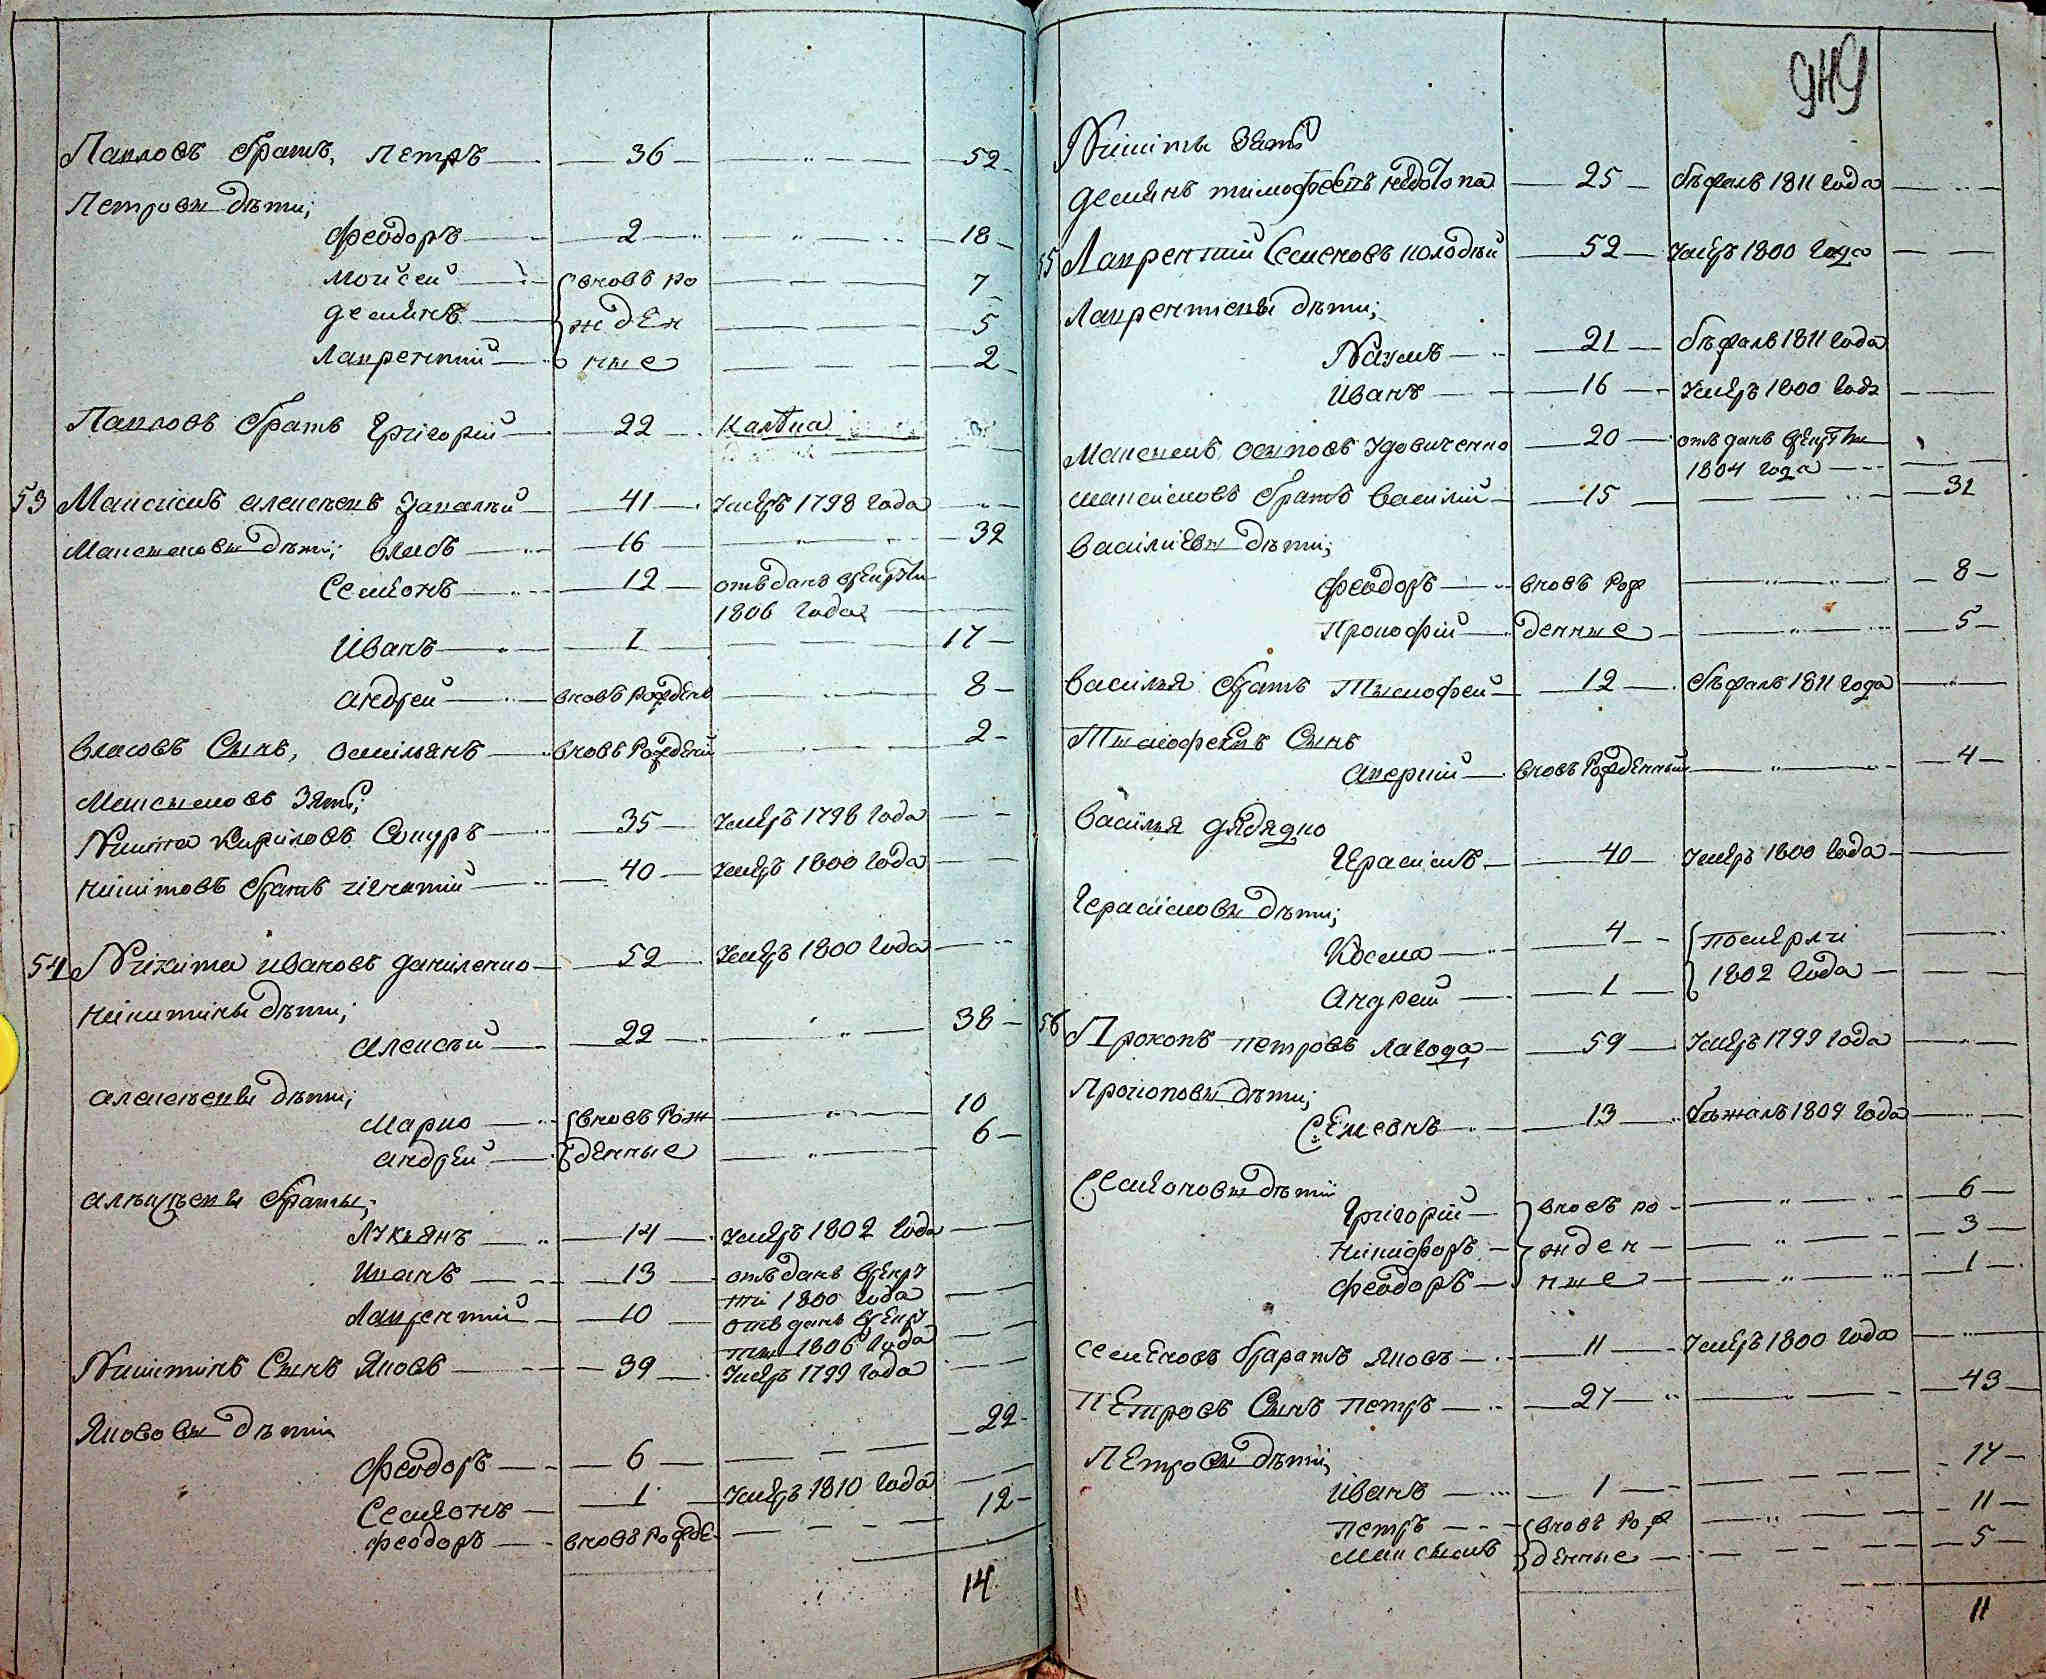 Павловъ братъ, Петръ — 36 — „ — 52
Петровы дѣти;
Феодоръ — 2 — „ — 18
Мойсей — вновь ро — 7
Демянъ — жден — 5
Лаврентий — ные — 2
Павловъ братъ Григорий — 22 — калѣка
53 Максимъ Алексѣевъ — 41 — умеръ 1798 года
Максимовы дѣти; Власъ — 16 — „ — 32
Семионъ — 12 — отъданъ врекрути
1806 года
Иванъ — 1 — 17
Андрей — вновь рожденъ — 8
Власовъ сынъ, Емилианъ — вновь рожденный — 2
Максимовъ зять;
Никита Кириловъ — 35 — умеръ 1798 года
Никитовъ братъ Игнатий — 40 — умеръ 1800 года
54 Никита Ивановъ Даниленко — 52 — умеръ 1800 года
Никитины дѣти;
Алексѣй — 22 — „ — 38
Алексѣевы дѣти;
Марко — вновь рож — „ — 10
Андрей — денные — „ — 6
Алѣксѣевы браты;
Лукъянъ — 14 — умеръ 1802 года
Иванъ — 13 — отъданъ врекру
ти 1800 года
Лаврентий — 10 — отъданъ врекру
ти 1806 года
Никитинъ сынъ Яковъ — 39 — умеръ 1799 года
Якововы дѣти
Феодоръ — 6 — 22
Семионъ — 1 — умеръ 1810 года
Феодоръ — вновь рожде — 12
14
Никиты зять
Демянъ Тимофеевъ — 25 — бѣжалъ 1811 года
55 Лаврентий Семеновъ — 52 — умеръ 1800 года
Лаврентиевы дѣти;
Наумъ — 21 — бѣжалъ 1811 года
Иванъ — 16 — умеръ 1800 года
Максимъ Осиповъ Удовиченко — 20 — отъданъ врекрути
1804 года
Максимовъ братъ Василий — 15 — „ — 32
Василиевы дѣти;
Феодоръ — вновь рож — „ — 8
Прокофий — денные — „ — 5
Василья братъ Тимофей — 12 — бѣжалъ 1811 года
Тимофеевъ сынъ
вновь рожденный — „ — 4
Василья дядядко
Герасимъ — 40 — умеръ 1800 года
Герасимовы дѣти;
Косма — 4 — померли
Андрей — 1 — 1802 года
56 Прокопъ Петровъ Лагода — 59 — умеръ 1799 года
Прокоповы дѣти;
Семионъ — 13 — бѣжалъ 1809 года
Семионовы дѣти
Григорий — вновь ро — „ — 6
Никифоръ — жден — „ — 3
Феодоръ — ные — „ — 1
Семеновъ братъ Яковъ — 11 — умеръ 1800 года
Петровъ сынъ Петръ — 27 — „ — 43
Петровы дѣти;
Иванъ — 1 — 17
Петръ — вновь рож — „ — 11
Максимъ — денные — 5
11